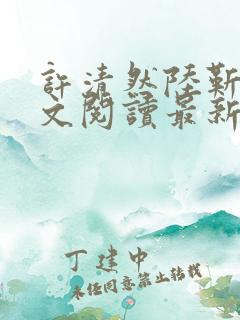 許清然陸靳
文閱讀最新
丁建中
未经同意禁止转载